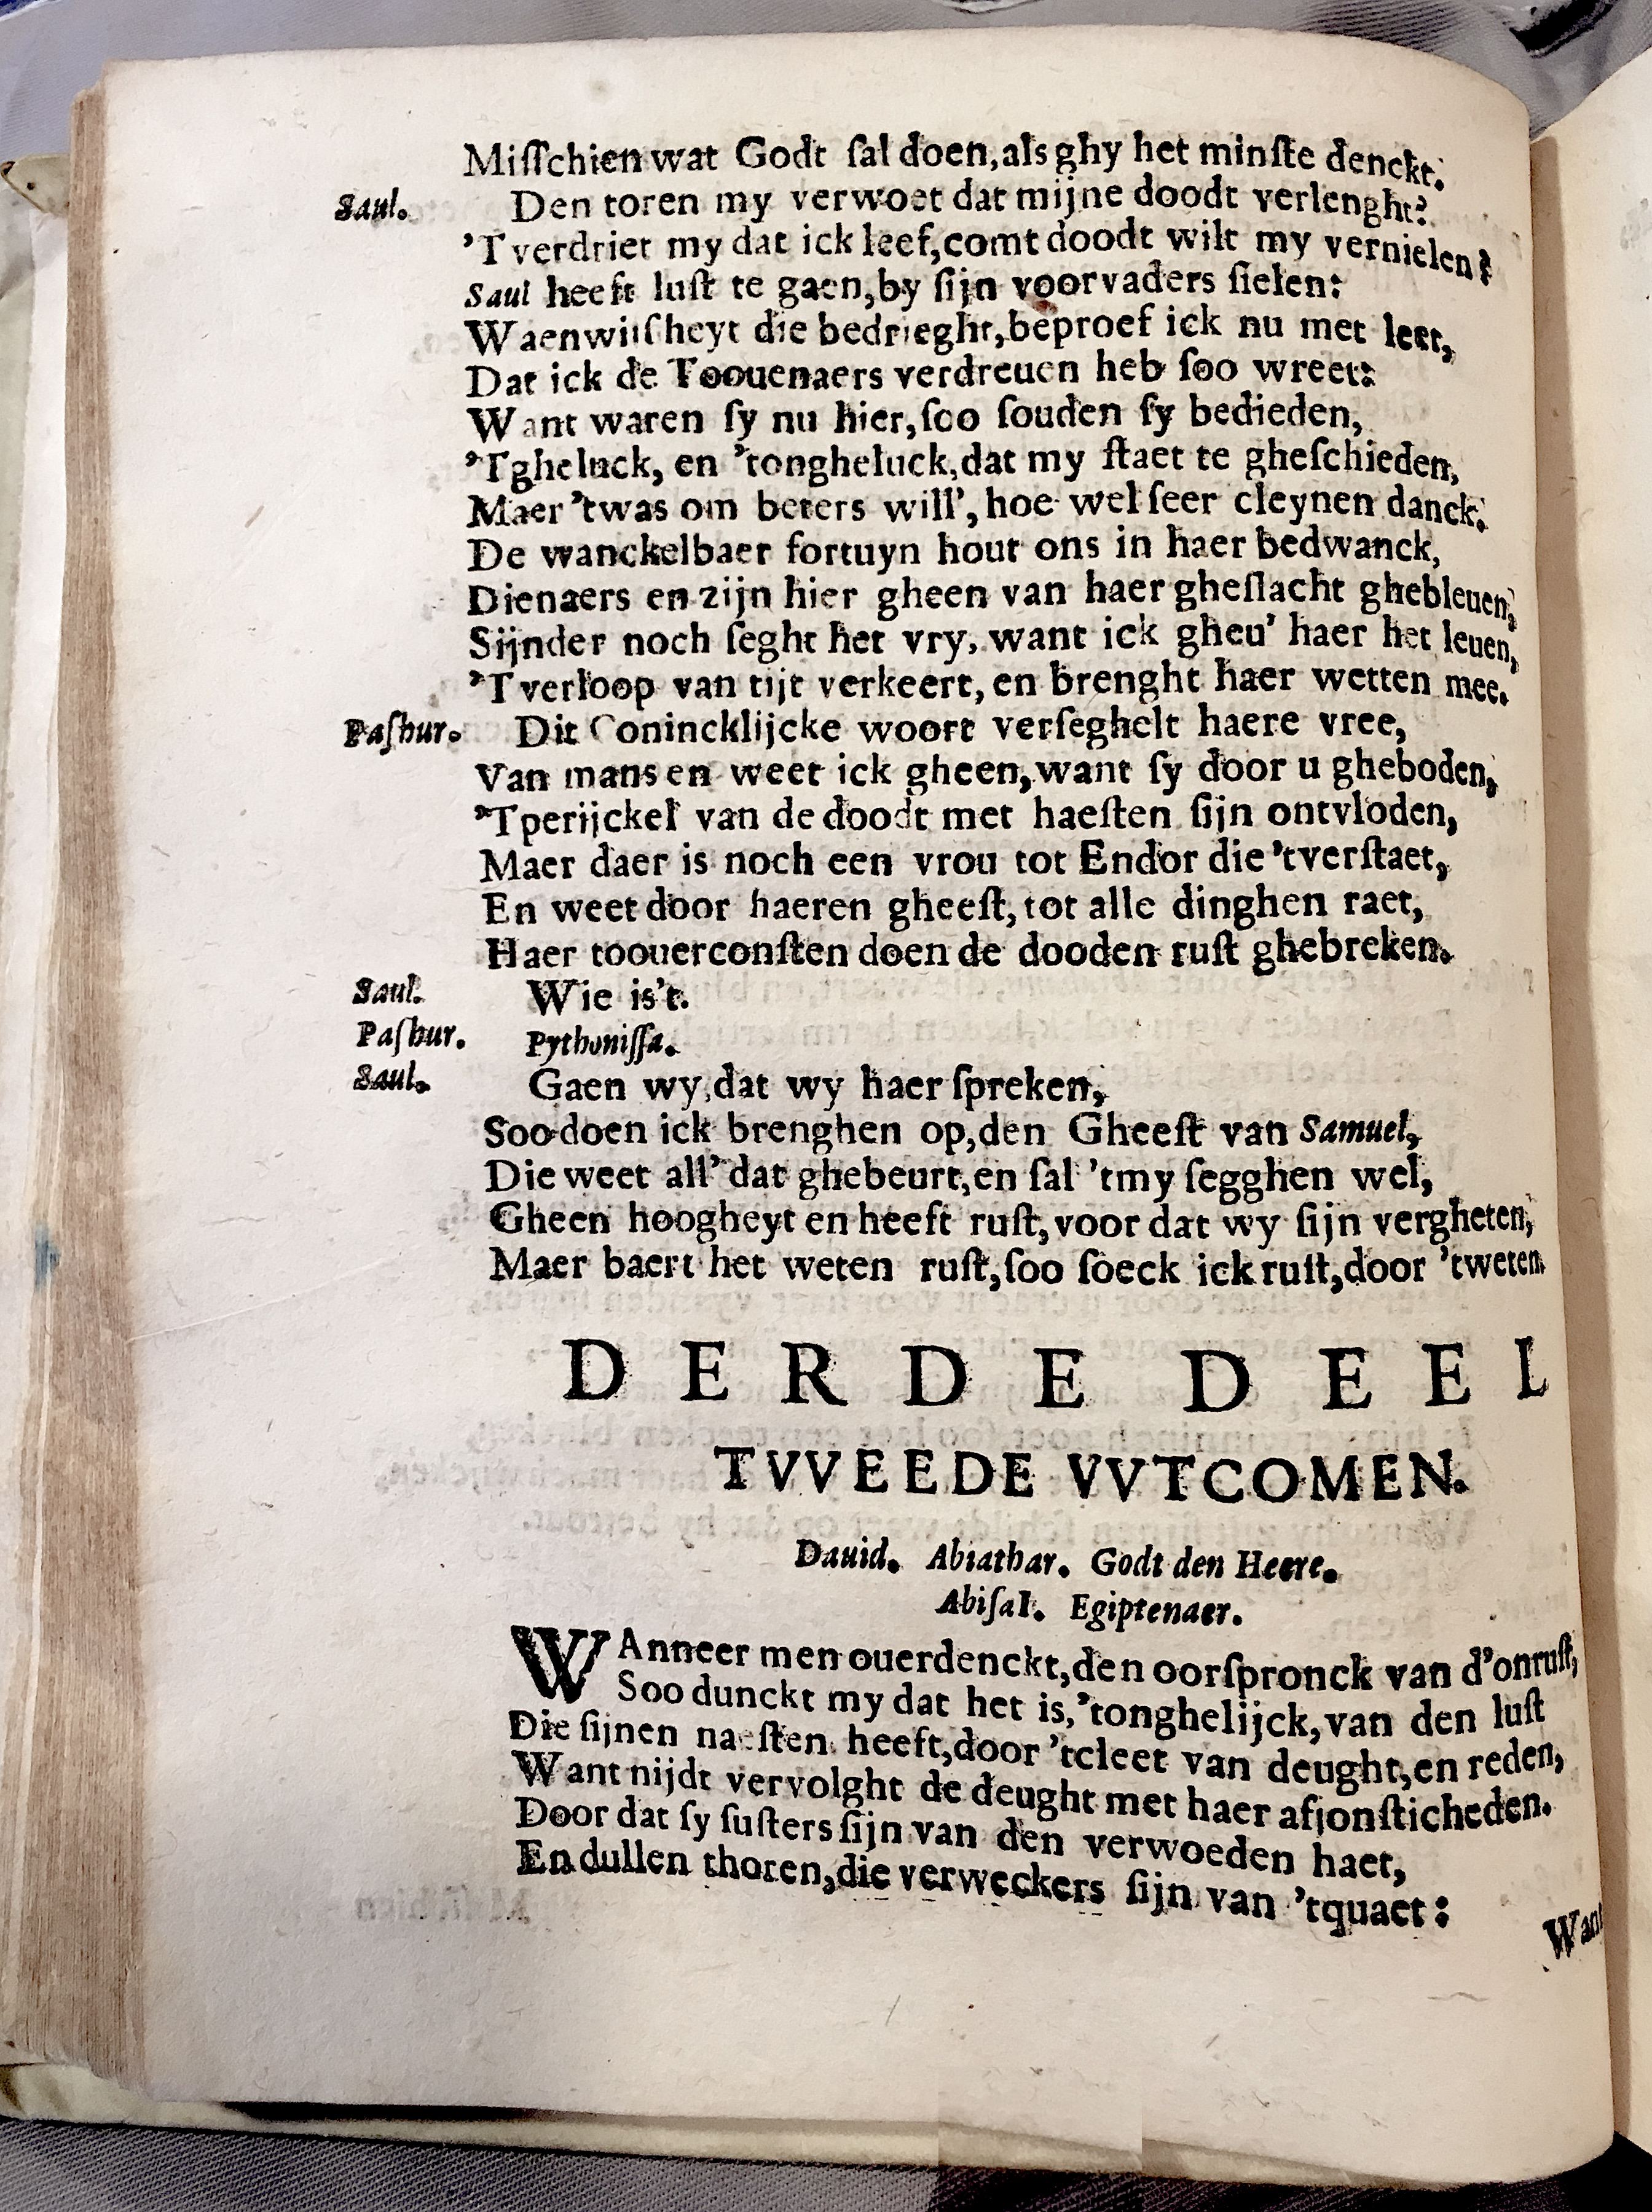 Misſchien wat Godt ſal doen, als ghy het minſte denckt.
Saul. Den toren my verwoet dat mijne doodt verlenght?
'T verdriet my dat ick leef, comt doodt wilt my vernielen?
Saul heeft luſt te gaen, by ſijn voorvaders ſielen:
Waenwiſheyt die bedrieght, beproef ick nu met leet,
Dat ick de Toouenaers verdreuen heb ſoo wreet:
Want waren ſy nu hier, ſoo ſouden ſy bedieden,
'Tgheluck, en 'tongheluck, dat my ſtaet te gheſchieden,
Maer 'twas om beters will', hoe wel ſeer cleynen danck.
De wanckelbaer fortuyn hout ons in haer bedwanck,
Dienaers en zijn hier gheen van haer gheſlacht ghebleuen,
Sijnder noch ſeght het vry, want ick gheu' haer het leuen,
'T verloop van tijt verkeert, en brenght haer wetten mee.
Paſhur. Dit Conincklijcke woort verſeghelt haere vree,
Van mans en weet ick gheen, want ſy door u gheboden,
'Tperijckel van de doodt met haeſten ſijn ontvloden,
Maer daer is noch een vrou tot Endor die 'tverſtaet,
En weet door haeren gheeſt, tot alle dinghen raet,
Haer toouerconſten doen de dooden ruſt ghebreken.
Saul. Wie is't.
Paſhur. Pythoniſſa.
Saul. Gaen wy, dat wy haer ſpreken,
Soo doen ick brenghen op, den Gheeſt van Samuel,
Die weet all' dat ghebeurt, en ſal 'tmy ſegghen wel,
Gheen hoogheyt en heeft ruſt, voor dat wy ſijn vergheten,
Maer baert het weten ruſt, ſoo ſoeck ick ruſt, door 'tweten
DERDE DEEL
TVVEEDE VVTCOMEN.
Dauid. Abiathar. Godt den Heere.
Abiſaï. Egiptenaer.
WAnneer men ouerdenckt, den oorſpronck van d'onruſt,
Soo dunckt my dat het is, 'tonghelijck, van den luſt
Die ſijnen naeſten heeft, door 'tcleet van deught, en reden,
Want nijdt vervolght de deught met haer afjonſticheden.
Door dat ſy ſuſters ſijn van den verwoeden haet,
En dullen thoren, die verweckers ſijn van 'tquaet:
Want